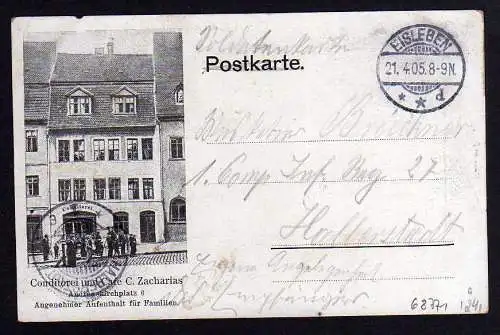 Soldatenkarte
Postkarte.
EISLEBEN
21.4.05.8-9N.
* * d
Musketier
1. Comp Inf. Reg. 27
Halberstadt
Eigene Angelegenheit
d. Empfängers
Conditorei
Conditorei und Café C. Zacharias
Andreaskirchplatz 6
Angenehmer Aufenthalt für Familien.
6877,